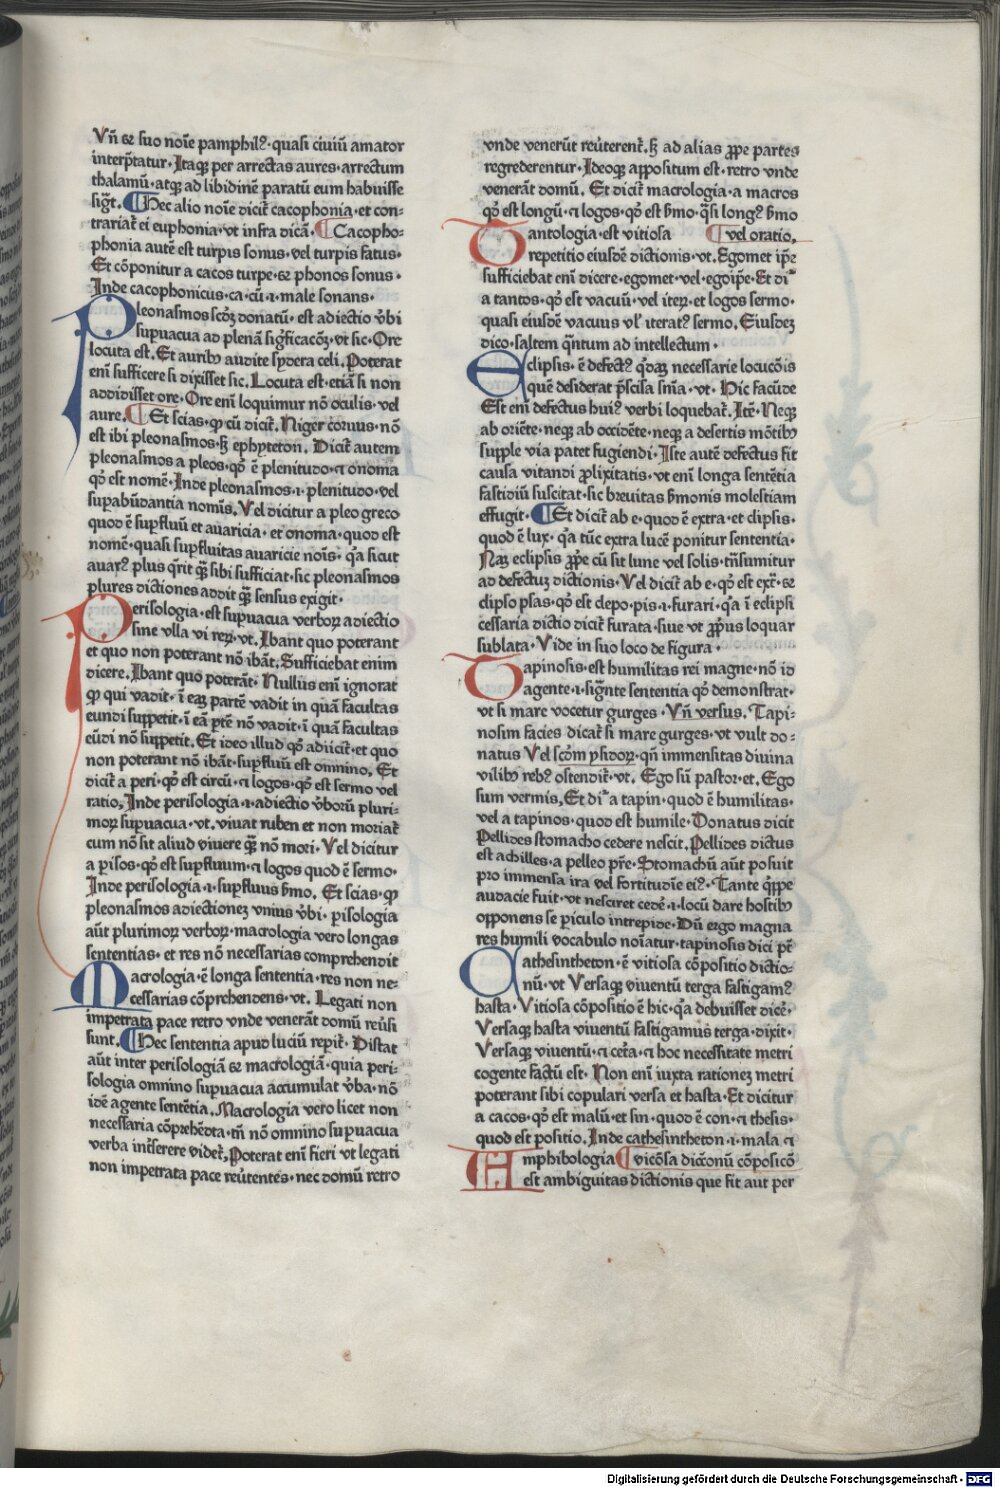 Vñ ⁊ suo noīe pamphilꝰ · quasi ciuiū amator
interp̄tatur · Itaqꝫ per arrectas aures · arrectum
thalamū · atqꝫ ad libidinē paratū eum habuisse
sigt̄. ¶ Hec alio noīe dicit̄ cacophonia · et con⸗
trariat̄ ei euphonia · vt infra dicā. ¶ Cacopho⸗
phonia autē est turpis sonus · vel turpis fatus ·
Et cōponitur a cacos turpe · ⁊ phonos sonus ·
Inde cacophonicus · ca · cū · ı · male sonans ·
Pleonasmos scōꝫ donatū · est adiectio v̄bi
supuacua ad plenā sig̃ficacōꝫ · vt sic · Ore
locuta est. Et auribꝰ audite sydera celi. Poterat
enī sufficere si dixisset sic. Locuta est · etiā si non
addidisset ore · Ore enī loquimur nō oculis · vel
aure. ¶ Et scias · ꝙ cū dicit̄ · Niger coruus · nō
est ibi pleonasmos · sꝫ ephyteton. Dicit̄ autem
pleonasmos a pleos · qō ē plenitudo · ⁊ onoma
qō est nomē · Inde pleonasmos · ı · plenitudo · vel
supabūdantia nomīs. Vel dicitur a pleo greco
quod ē supfluū et auaricia · et onoma · quod est
nomē · quasi supfluitas auaricie noīs · qͣa sicut
auarꝰ plus q̄rit qͣꝫ sibi sufficiat · sic pleonasmos
plures dictiones addit qͣꝫ sensus exigit ·
Perisologia · est supuacua verboꝝ adiectio
sine vlla vi reꝝ · vt. Ibant quo poterant
et quo non poterant nō ibāt. Sufficiebat enim
dicere. Ibant quo poterāt · Nullus enī ignorat
ꝙ qui vadit · ī eaꝫ partē vadit in quā facultas
eundi suppetit · ī eā ptē nō vadit · ī quā facultas
eūdi nō suppetit. Et ideo illud qō adiicit̄ · et quo
non poterant nō ibāt · supfluū est omnino. Et
dicit̄ a peri · qō est circū · ⁊ logos · qō est sermo vel
ratio. Inde perisologia · ı · adiectio v̄borū pluri⸗
moꝝ supuacua · vt. viuat ruben et non moriat̄
cum nō sit aliud viuere qͣꝫ nō mori · Vel dicitur
a pisos · qō est supfluum · ⁊ logos quod ē sermo ·
Inde perisologia · ı · supfluus s̄mo. Et scias · ꝙ
pleonasmos adiectioneꝫ vnius v̄bi · pisologia
aūt plurimoꝝ verboꝝ · macrologia vero longas
sententias · et res nō necessarias comprehendit
Macrologia · ē longa sententia · res non ne⸗
cessarias cōprehendens · vt. Legati non
impetrata pace retro vnde venerāt domū reūsi
sunt. ¶ Hec sententia apud luciū repit̄ · Distat
aūt inter perisologiā ⁊ macrologiā · quia peri⸗
sologia omnino supuacua accumulat v̄ba · nō
idē agente sentētia. Macrologia vero licet non
necessaria cōprehēdat · tñ nō omnino supuacua
verba int̄serere videt̄. Poterat enī fieri vt legati
non impetrata pace reūtentes · nec domū retro
vnde venerūt reūterent̄. sꝫ ad alias ꝓpe partes
regrederentur · Ideoqꝫ appositum est · retro vnde
venerāt domū. Et dicit̄ macrologia · a macros
qō est longū · ⁊ logos · qō est s̄mo · qͣsi longꝰ s̄mo
Tantologia · est vitiosa ¶ vel oratio.
repetitio eiusdē dictionis · vt. Egomet ip̄e
sufficiebat enī dicere · egomet · vel · egoip̄e · Et dīꝛ
a tantos · qō est vacuū · vel iteꝝ · et logos sermo ·
quasi eiusdē vacuus vl̓ iteratꝰ sermo. Eiusdeꝫ
dico · saltem qͣntum ad intellectum ·
Eclipsis · ē defectꝰ qͣdaꝫ necessarie locucōis
quē desiderat p̄scisa sn̄ia · vt · Hic facūde
Est enī defectus huiꝰ verbi loquebat̄. Itē · Neqꝫ
ab oriēte · neqꝫ ab occidēte · neqꝫ a desertis mōtibꝰ
supple via patet fugiendi · Iste autē defectus fit
causa vitandi ꝓlixitatis · vt enī longa sentētia
fastidiū suscitat · sic breuitas s̄monis molestiam
effugit · ¶ Et dicit̄ ab e · quod ē extra · et clipsis ·
quod ē lux · qͣa tūc extra lucē ponitur sententia ·
Naꝫ eclipsis ꝓpe cū sit lune vel solis · tn̄ sumitur
ad defectuꝫ dictionis · Vel dicit̄ ab e · qō est exͣ · ⁊
clipso psas · qō est depo · pis · ı · furari · qͣa ī eclipsi
cessaria dictio dicit̄ furata · siue vt ꝓpius loquar
sublata · Vide in suo loco de figura ·
Tapinosis · est humilitas rei magne · nō id
agente · ı · signāte sententia qō demonstrat ·
vt si mare vocetur gurges · Vñ versus. Tapi⸗
nosim facies dicat̄ si mare gurges · vt vult do⸗
natus Vel scōm ysidoꝝ · qn̄ immensitas diuina
vilibꝰ rebꝰ ostendit̄ · vt. Ego sū pastor · et. Ego
sum vermis. Et dīꝛ a tapin · quod ē humilitas ·
vel a tapinos · quod est humile · Donatus dicit
Pellides stomacho cedere nescit. Pellides dictus
est achilles · a pelleo pr̄e · Stomachū aūt posuit
pro immensa ira vel fortitudīe eiꝰ · Tante qͥppe
audacie fuit · vt nesciret cedē · ı · locū dare hostibꝰ
opponens se piculo intrepide · Dū ergo magna
res humili vocabulo noīatur · tapinosis dici pt̄
Cathesintheton · ē vitiosa cōpositio dictio⸗
nū · vt Versaqꝫ iuuentū terga fastigamꝰ
hasta · Vitiosa cōpositio ē hic · qͣa debuisset dicē ·
Versaqꝫ hasta iuuentū fastigamus terga · dixit ·
Versaqꝫ iuuentū · ⁊ cet̄a · ⁊ hoc necessitate metri
cogente factū est · Non enī iuxta rationeꝫ metri
poterant sibi copulari versa et hasta · Et dicitur
a cacos · qō est malū · et sin · quod ē con · ⁊ thesis ·
quod est positio. Inde cathesintheton · ı · mala ⁊
Amphibologia ¶ vicōsa dictōnū cōposicō
est ambiguitas dictionis que fit aut per
Digitalisierung gefördert durch die Deutsche Forschungsgemeinschaft - DFG